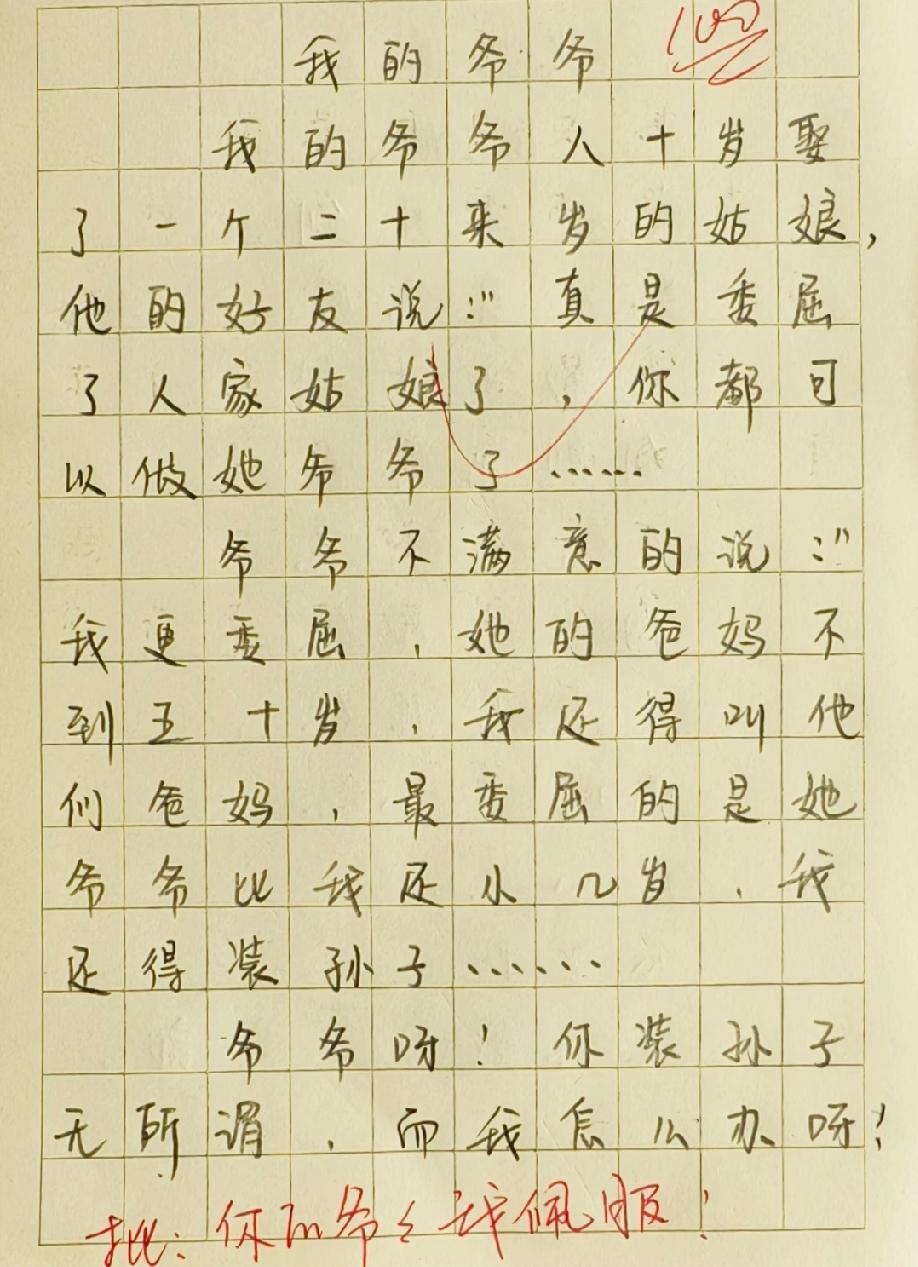 我的爷爷 100
我的爷爷八十岁娶
了一个二十来岁的姑娘,
他的好友说:"真是委屈
了人家姑娘了,你都可
以做她爷爷了……
爷爷不满意的说:"
我更委屈,她的爸妈不
到五十岁,我还得叫他
们爸妈,最委屈的是她
爷爷比我还小几岁,我
还得装孙子……
爷爷呀!你装孙子
无所谓,而我怎么办呀!
批:你的爷爷我佩服!